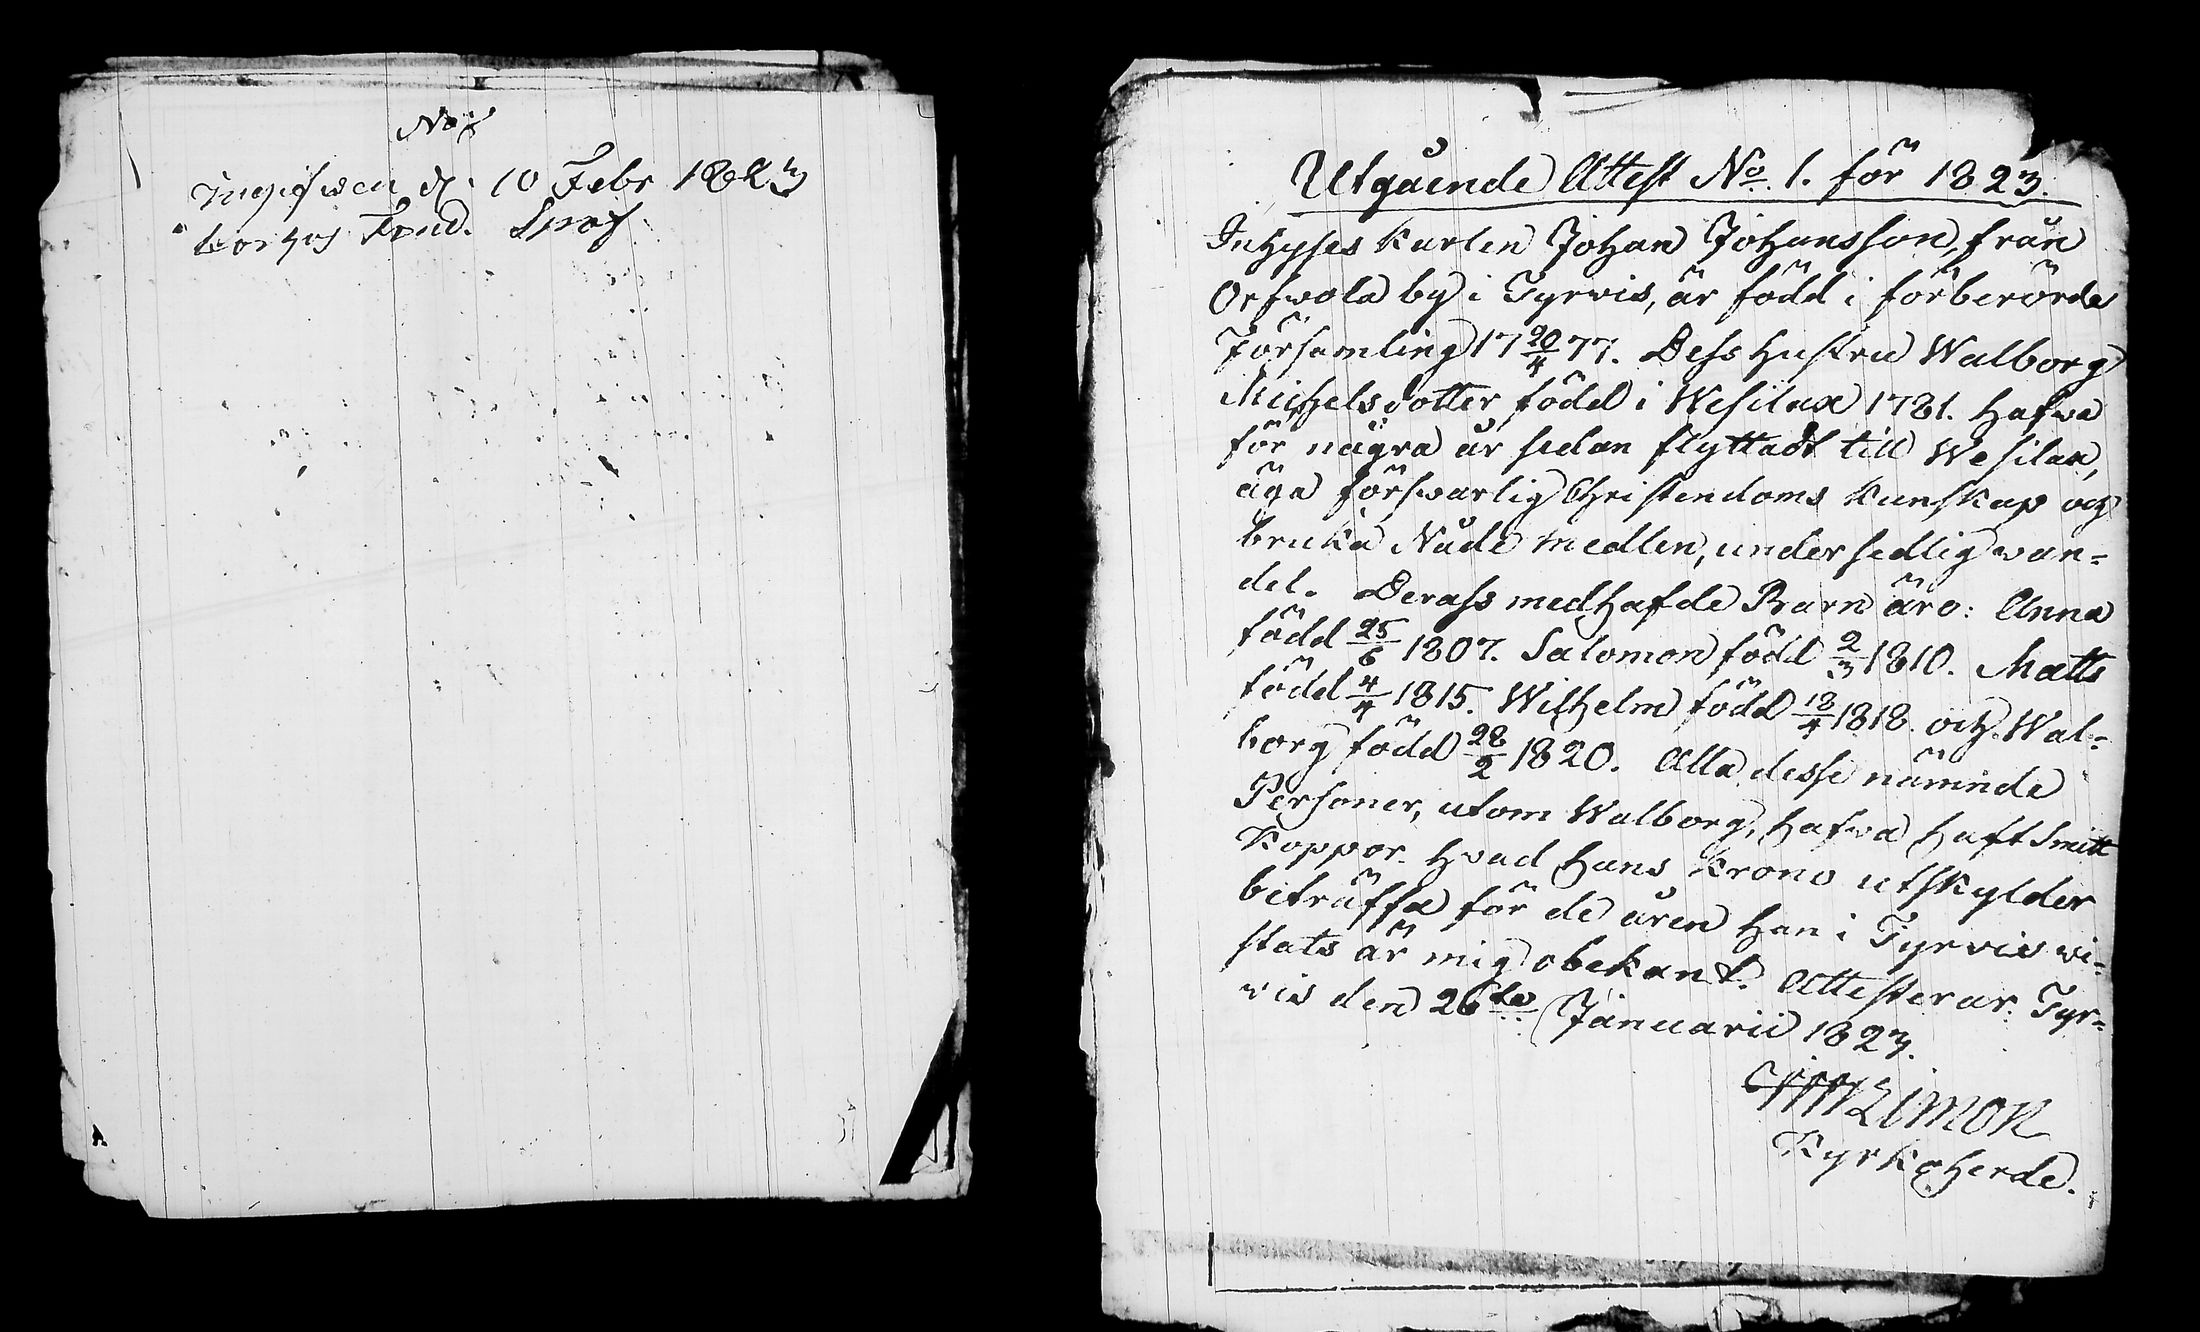 No 8
Ingifwen d. 10 Febr 1823
Utgående Attest No. 1. för 1823.
Inhyses Karlen Johan Johansson, från
Orfwola by i Tyrvis, är född i förberörde
Församling 17 20/4 77. Dess Hustru Walborg
Michelsdotter född i Wesilax 1781. Hafwa
för några år sedan flyttadt till Wesilax,
äga förswarlig Christendoms Kunskap och
bruka Nåde medlen, under sedlig wan=
del. Derass medhafde Barn äro: Anna
född 25/6 1807. Salomon född 2/3 1810. Matts
född 4/4 1815. Wilhelm född 18/4 1818. och Wal=
borg född 28/2 1820. Alla desse nämnde
Personer, utom Walborg, hafva haft Smitt
Koppor. Hvad hans Krono utskylder
beträffa för de åren han i Tyrvis vi=
stats är mig obekant. Attesterar. Tyr=
vis den 26te Januarii 1823.
Limon
Kyrkoherde.